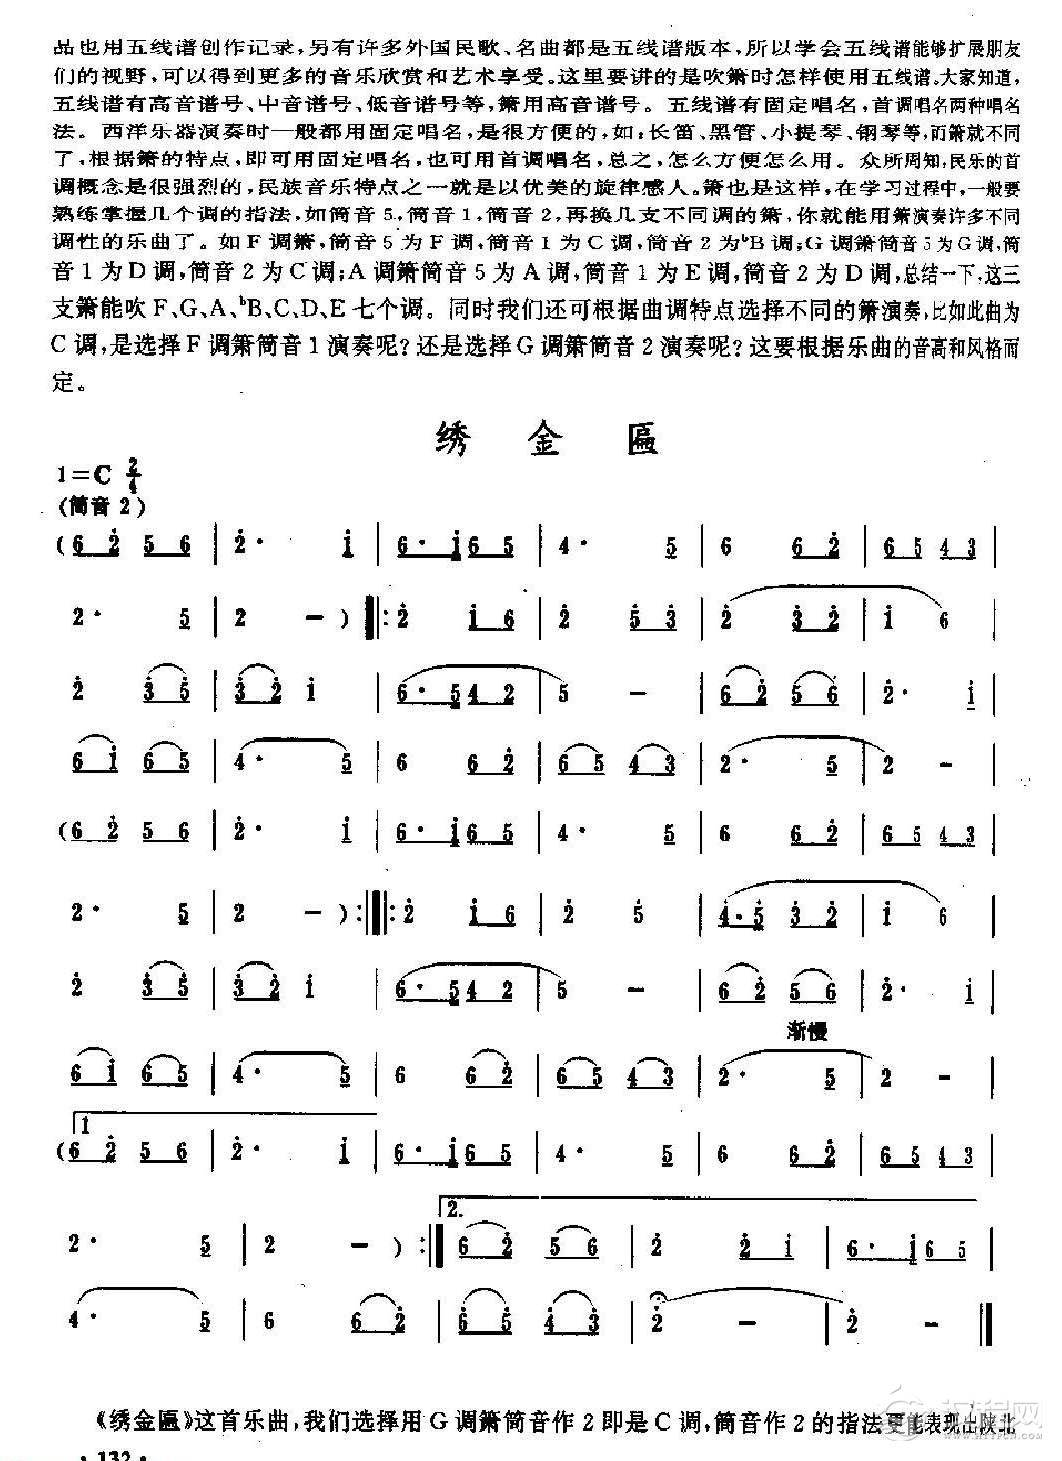 品也用五线谱创作记录,另有许多外国民歌、名曲都是五线谱版本,所以学会五线谱能够扩展朋友
们的视野,可以得到更多的音乐欣赏和艺术享受。这里要讲的是吹箫时怎样使用五线谱。大家知道,
五线谱有高音谱号、中音谱号、低音谱号等,箫用高音谱号。五线谱有固定唱名,首调唱名两种唱名
法。西洋乐器演奏时一般都用固定唱名,是很方便的,如:长笛、黑管、小提琴、钢琴等,而箫就不同
了,根据箫的特点,即可用固定唱名,也可用首调唱名,总之,怎么方便怎么用。众所周知,民乐的首
调概念是很强烈的,民族音乐特点之一就是以优美的旋律感人。箫也是这样,在学习过程中,一般要
熟练掌握几个调的指法,如筒音5,筒音1,筒音2,再换几支不同调的箫,你就能用箫演奏许多不同
调性的乐曲了。如F调箫,筒音5为F调,筒音1为C调,筒音2为ᵇB调;G调箫筒音5为G调,筒
音1为D调,筒音2为C调;A调箫筒音5为A调,筒音1为E调,筒音2为D调,总结一下,这三
支箫能吹F、G、A、ᵇB、C、D、E七个调。同时我们还可根据曲调特点选择不同的箫演奏,比如此曲为
C调,是选择F调箫筒音1演奏呢?还是选择G调箫筒音2演奏呢?这要根据乐曲的音高和风格而
定。
绣金匾
1=C 2/4
(筒音2)
(6 2̇ 5 6 | 2̇· 1̇ | 6· 1̇ 6 5 | 4· 5 | 6 6 2̇ | 6 5 4 3 |
2· 5 | 2 - ) ‖: 2̇ 1̇ 6 | 2̇ 5̇ 3̇ | 2̇ 3̇ 2̇ | 1̇ 6 |
2̇ 3̇ 5̇ | 3̇ 2̇ 1̇ | 6· 5 4 2 | 5 - | 6 2̇ 5 6 | 2̇· 1̇ |
6 1̇ 6 5 | 4· 5 | 6 6 2̇ | 6 5 4 3 | 2· 5 | 2 - |
(6 2̇ 5 6 | 2̇· 1̇ | 6· 1̇ 6 5 | 4· 5 | 6 6 2̇ | 6 5 4 3 |
2· 5 | 2 - ) :‖: 2̇ 1̇ 6 | 2̇ 5̇ | 4̇· 5̇ 3̇ 2̇ | 1̇ 6 |
2̇ 3̇ 5̇ | 3̇ 2̇ 1̇ | 6· 5 4 2 | 5 - | 6 2̇ 5 6 | 2̇· 1̇ |
渐慢
6 1̇ 6 5 | 4· 5 | 6 6 2̇ | 6 5 4 3 | 2· 5 | 2 - |
1
(6 2̇ 5 6 | 2̇· 1̇ | 6· 1̇ 6 5 | 4· 5 | 6 6 2̇ | 6 5 4 3 |
2.
2· 5 | 2 - ) :‖ 6 2̇ 5 6 | 2̇ 2̇ 1̇ | 6· 1̇ 6 5 |
4· 5 | 6 6 2̇ | 6 5̇ 4̇ 3̇ | 2̇ - | 2̇ - ‖
《绣金匾》这首乐曲,我们选择用G调箫筒音作2即是C调,筒音作2的指法更能表现出陕北
· 132 ·